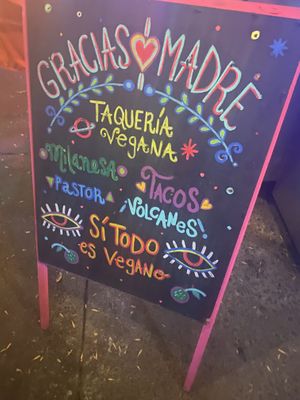 GRACIAS MADRE
TAQUERÍA
VEGANA
Milanesa
Pastor
TACOS
¡VOLCANES!
SÍ TODO
es VEGANO